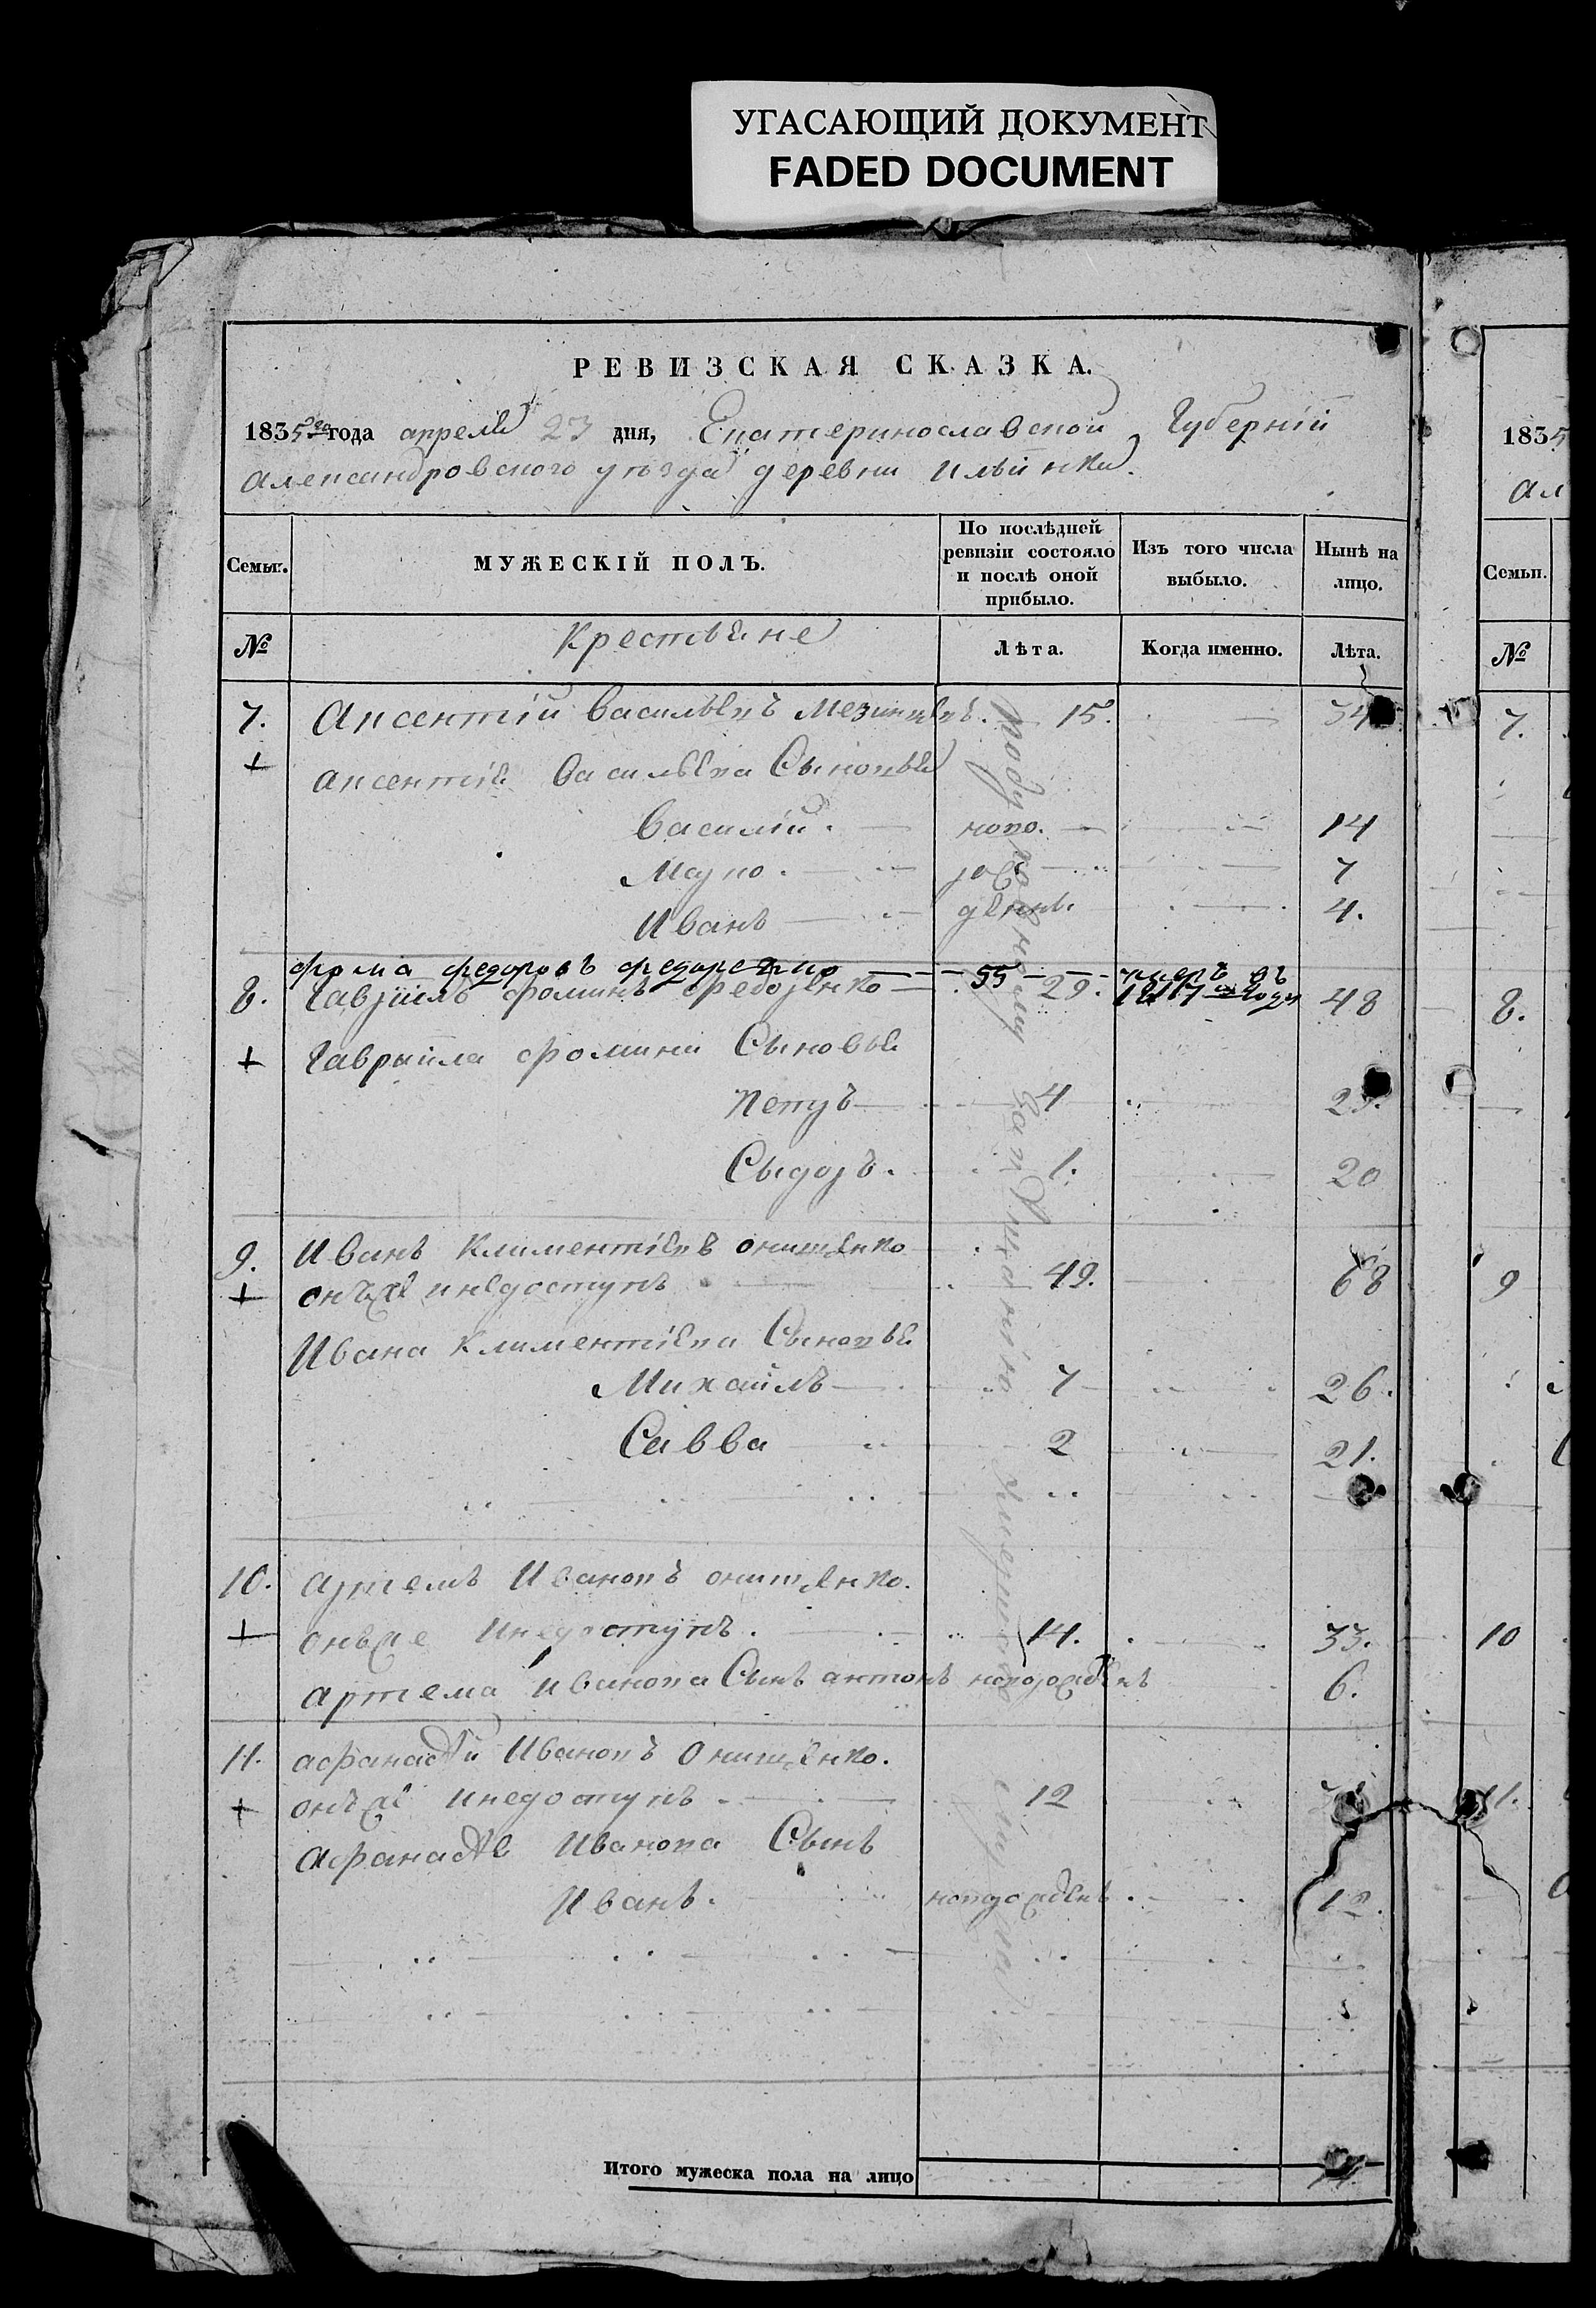 УГАСАЮЩИЙ ДОКУМЕНТ
FADED DOCUMENT
РЕВИЗСКАЯ СКАЗКА.
1835го года апреля 23 дня, Екатеринославской Губерніи
Александровского уѣзда деревни Ильинки.
Семьи. МУЖЕСКІЙ ПОЛЪ. По послѣдней ревизіи состояло и послѣ оной прибыло. Изъ того числа выбыло. Нынѣ на лицо.
№ Крестьяне Лѣта. Когда именно. Лѣта.
7. Аксентій Васильевъ 15. 34
+ Аксентія Васильева Сыновья
Василій. ново 14
Мауко. рож 7
Иванъ денъ. 4.
фома федоровъ федоренко 55 умеръ въ
8. Гавріилъ фоминъ федоренко 29. 1817 году 48
+ Гавріила фомина Сыновья
Петръ 4 23.
Сыдоръ. 1. 20
9. Иванъ Климентіевъ онищенко
+ онъже инедоступъ 49. 68
Ивана Климентіева Сыновья
Михаилъ 7 26.
Савва 2 21.
10. Артемъ Ивановъ онищенко.
+ онъже инедоступъ. 14. 33.
Артема Иванова Сынъ антонъ новорожденъ 6.
11. афанасій Ивановъ Онищенко.
+ онъже инедоступъ 12
Афанасія Иванова Сынъ
Иванъ. новорожденъ 12.
Итого мужеска пола на лицо
1835
Ал
Семьи.
№
7.
8.
9
10
11.